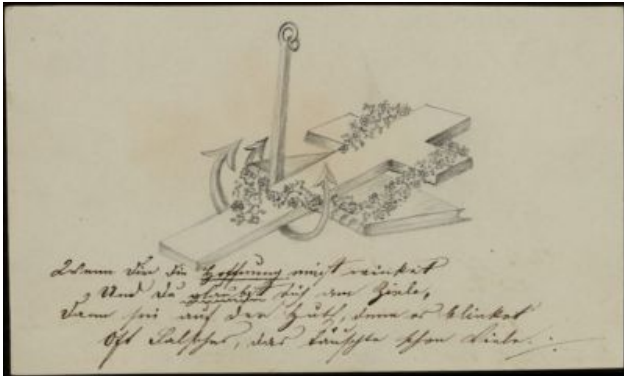 Wenn dir die Hoffnung winket
Und du glaubst dich am Ziele,
Dann sei auf der Hut, denn es blinket
Oft Falsches, das täuschte schon Viele.